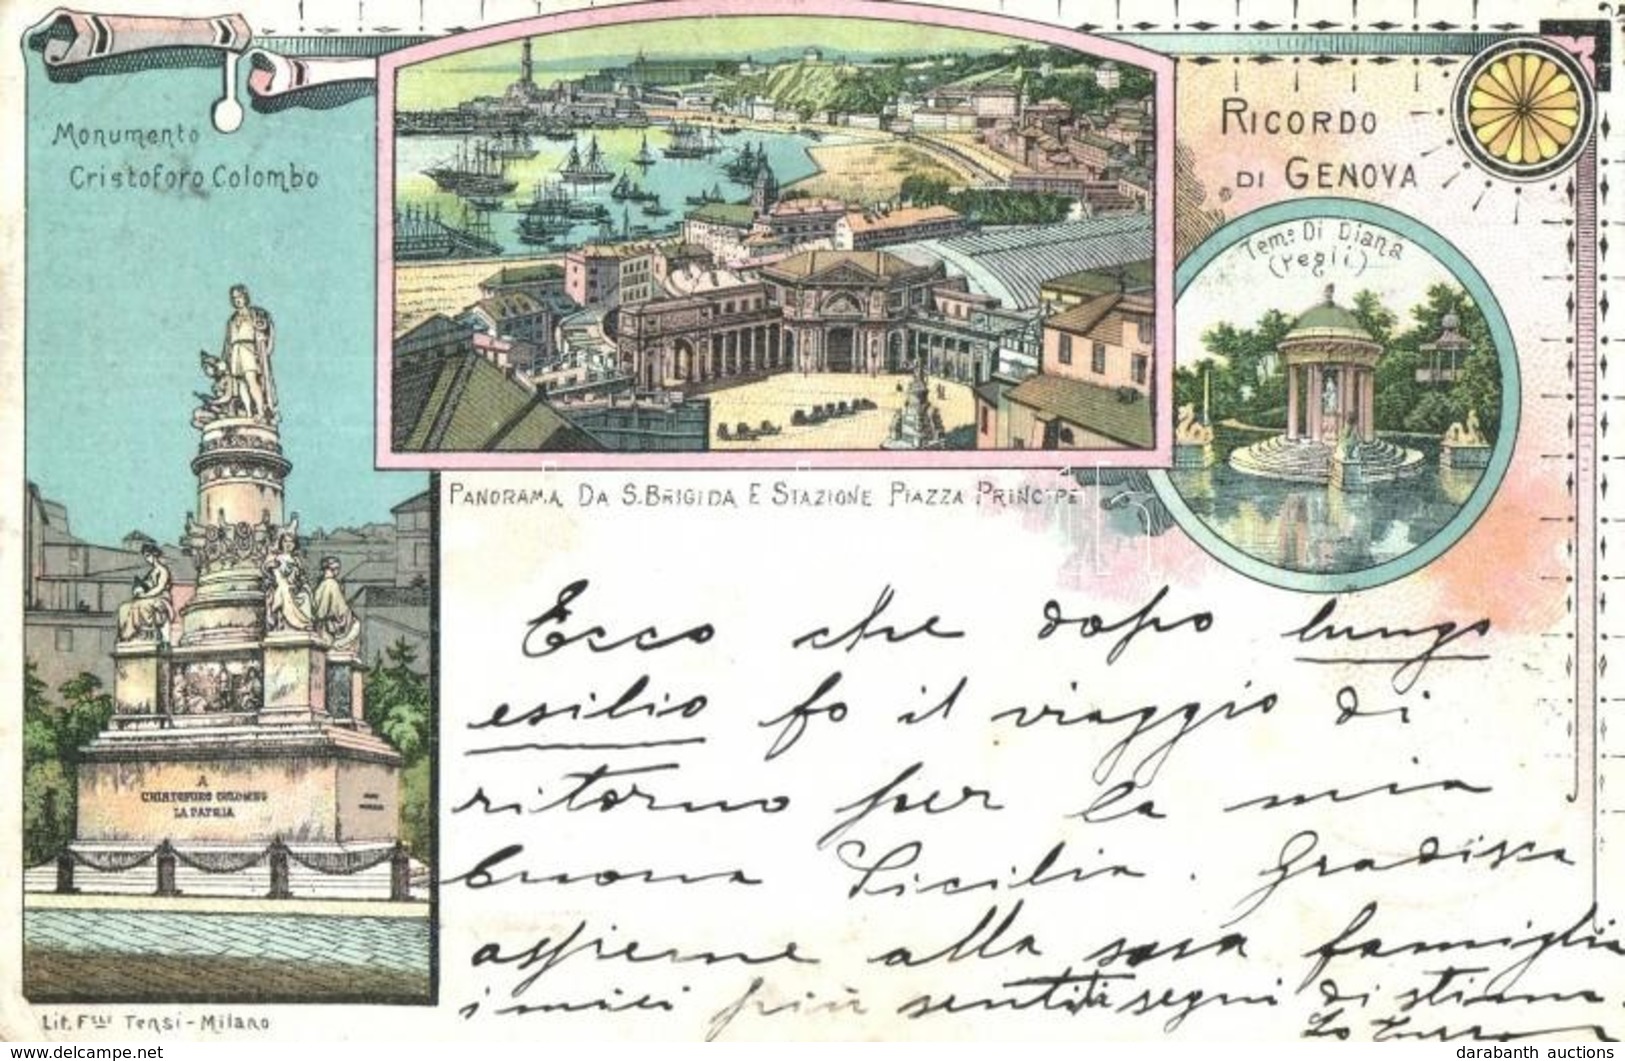 Monumento
Cristoforo Colombo
RICORDO
DI GENOVA
Tem.o Di Diana
(Pegli)
PANORAMA DA S. BRIGIDA E STAZIONE PIAZZA PRINCIPE
A
CRISTOFORO COLOMBO
LA PATRIA
Ecco che dopo lungo
esilio fo il viaggio di
ritorno per la mia
buona Sicilia. Gradisca
assieme alla sua famiglia
i miei più sentiti segni di stima.
Lit. Flli Tensi - Milano
www.delcampe.net
darabanth auctions